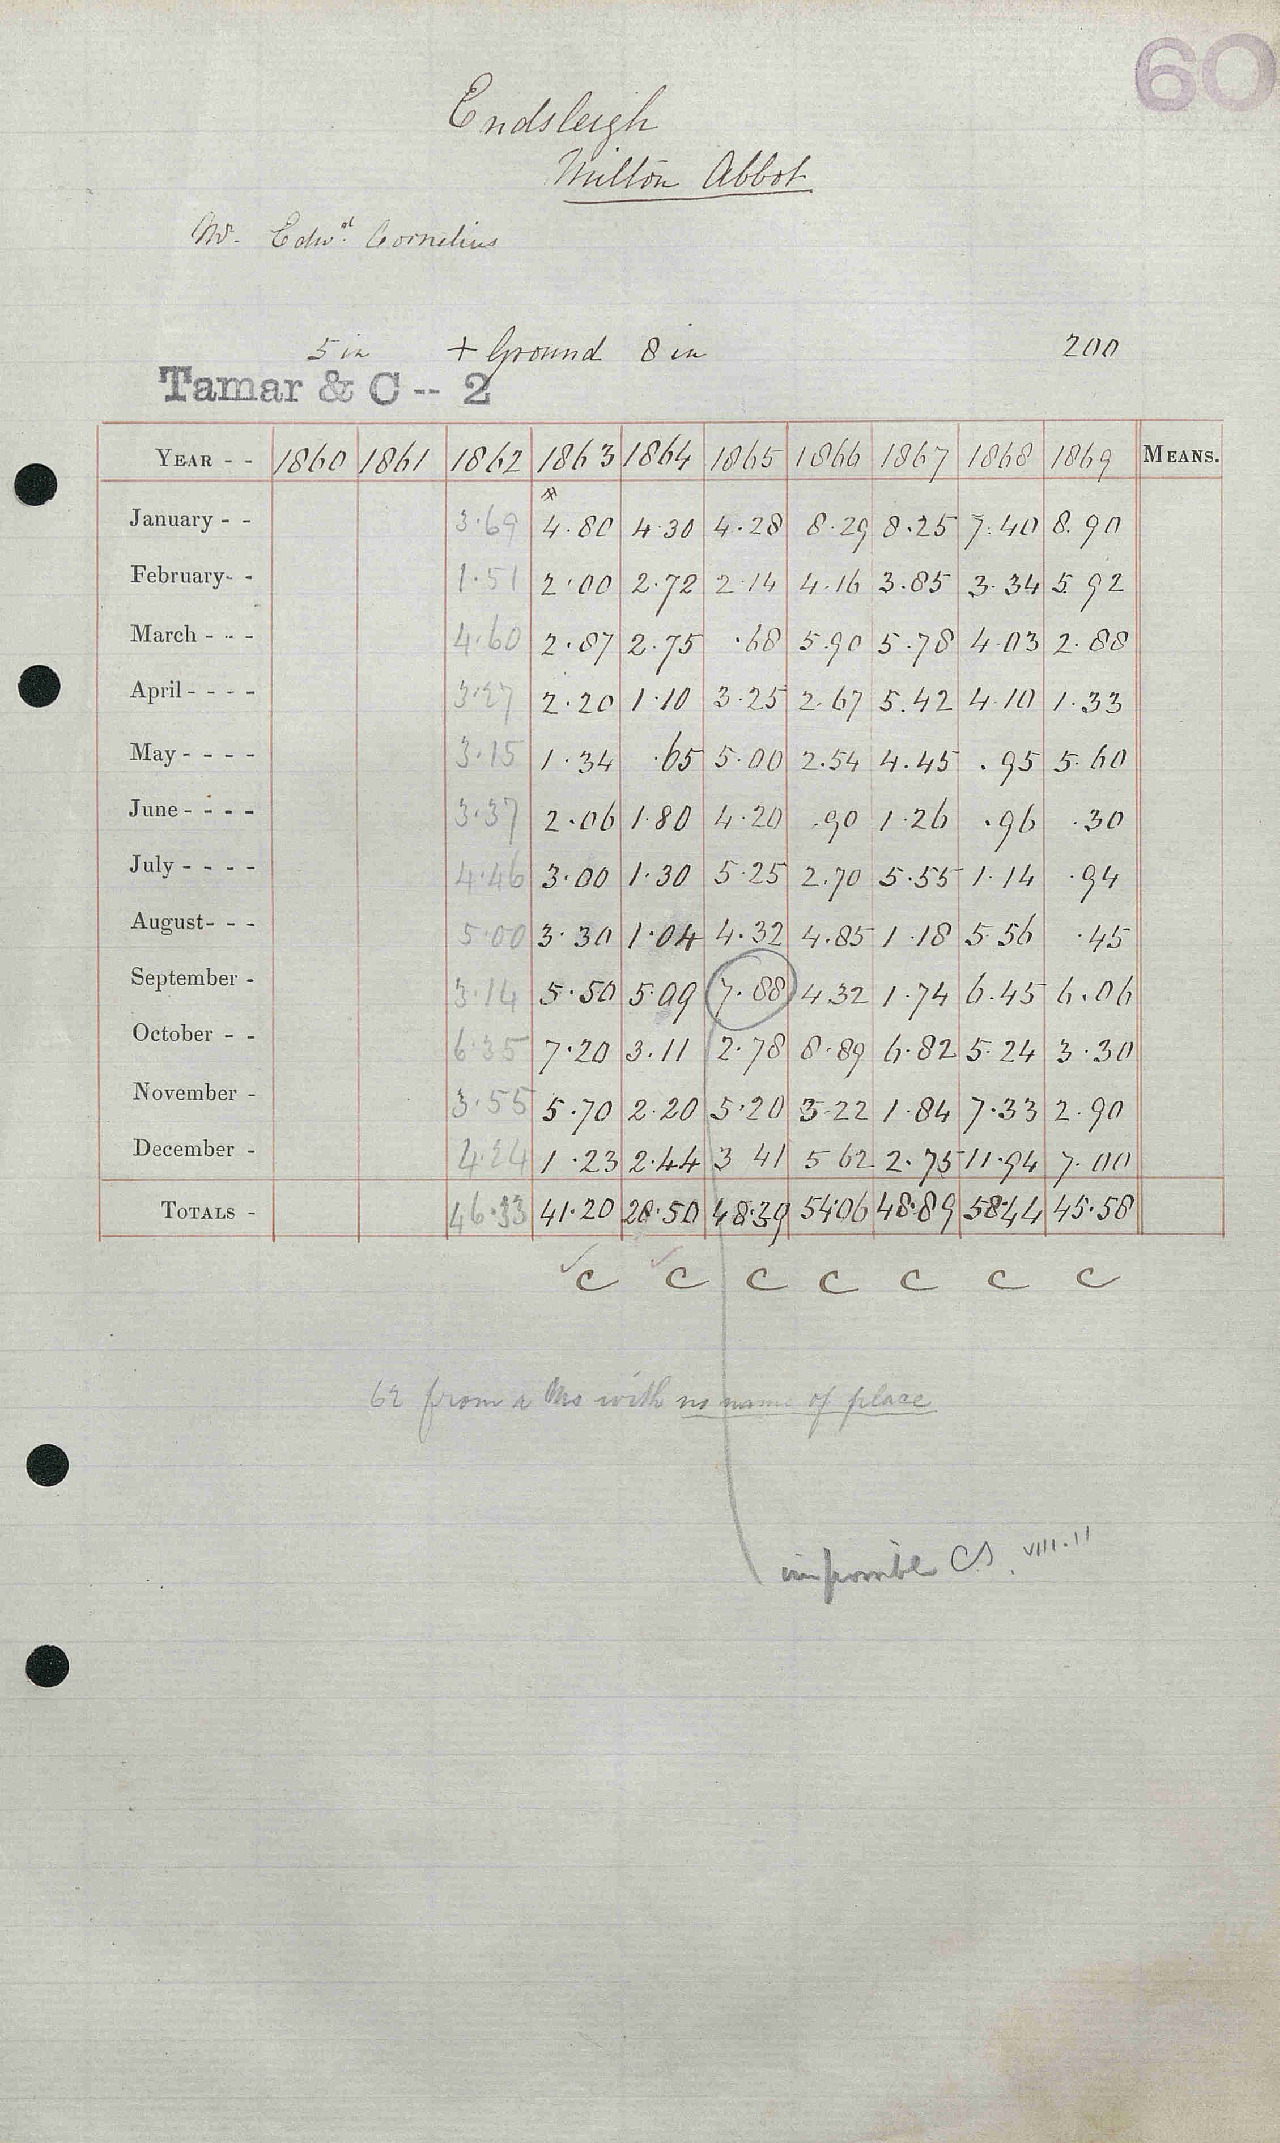 60
Endsleigh
Milton Abbot
Mr. Edwd. Cornelius
5 in + Ground 8 in 200
Tamar & C -- 2
YEAR - - 1860 1861 1862 1863 1864 1865 1866 1867 1868 1869 MEANS.
January - - 3.69 4.80 4.30 4.28 8.29 8.25 7.40 8.90
February- - 1.51 2.00 2.72 2.14 4.16 3.85 3.34 5.92
March - - - 4.60 2.87 2.75 .68 5.90 5.78 4.03 2.88
April - - - - 3.27 2.20 1.10 3.25 2.67 5.42 4.10 1.33
May - - - - 3.15 1.34 .65 5.00 2.54 4.45 .95 5.60
June - - - - 3.37 2.06 1.80 4.20 .90 1.26 .96 .30
July - - - - 4.46 3.00 1.30 5.25 2.70 5.55 1.14 .94
August- - - 5.00 3.30 1.04 4.32 4.85 1.18 5.56 .45
September - 3.14 5.50 5.09 7.88 4.32 1.74 6.45 6.06
October - - 6.35 7.20 3.11 2.78 8.89 6.82 5.24 3.30
November - 3.55 5.70 2.20 5.20 3.22 1.84 7.33 2.90
December - 4.24 1.23 2.44 3 41 5 62 2.75 11.94 7.00
TOTALS - 46.33 41.20 28.50 48.39 54.06 48.89 58.44 45.58
C C C C C C C
62 from a Ms with no name of place
impossible CS. VIII.11